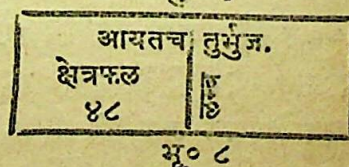 आयतच तुर्भुज.
क्षेत्रफल
४८
भू० ८